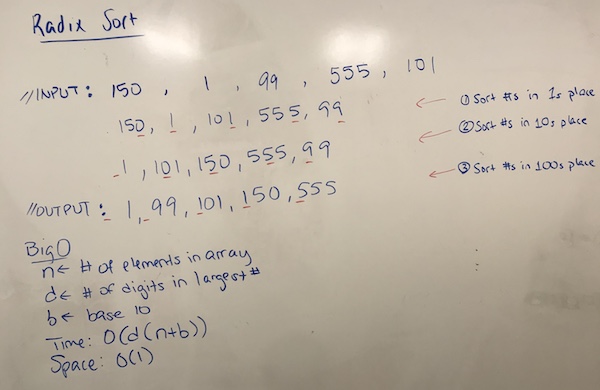 Radix Sort
//INPUT: 150, 1, 99, 555, 101
150, 1, 101, 555, 99 ← ① Sort #s in 1s place
1, 101, 150, 555, 99 ← ② Sort #s in 10s place
//OUTPUT: 1, 99, 101, 150, 555 ← ③ Sort #s in 100s place
Big O
n ← # of elements in array
d ← # of digits in largest #
b ← base 10
Time: O(d(n+b))
Space: O(1)